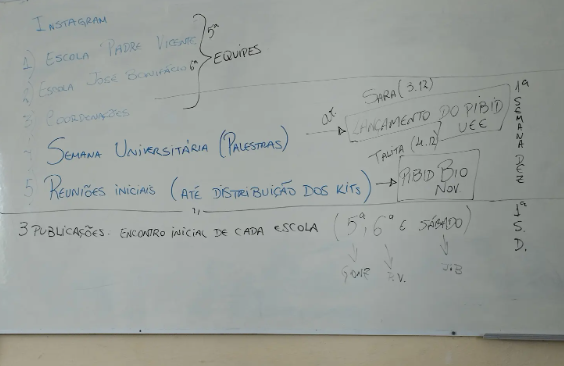 INSTAGRAM
1) ESCOLA PADRE VICENTE 5ª
2 ESCOLA JOSÉ BONIFÁCIO 6ª
} EQUIPES
3 COORDENAÇÕES
SARA (3.12)
LANÇAMENTO DO PIBID
SEMANA UNIVERSITÁRIA (PALESTRAS)
TALITA (4.12)
5. REUNIÕES INICIAIS (ATÉ DISTRIBUIÇÃO DOS KITS) → PIBID BIO
NOV.
1ª SEMANA DEZ
3 PUBLICAÇÕES. ENCONTRO INICIAL DE CADA ESCOLA (5ª, 6ª E SÁBADO)
P.V. J.B
1ª
S.
D.